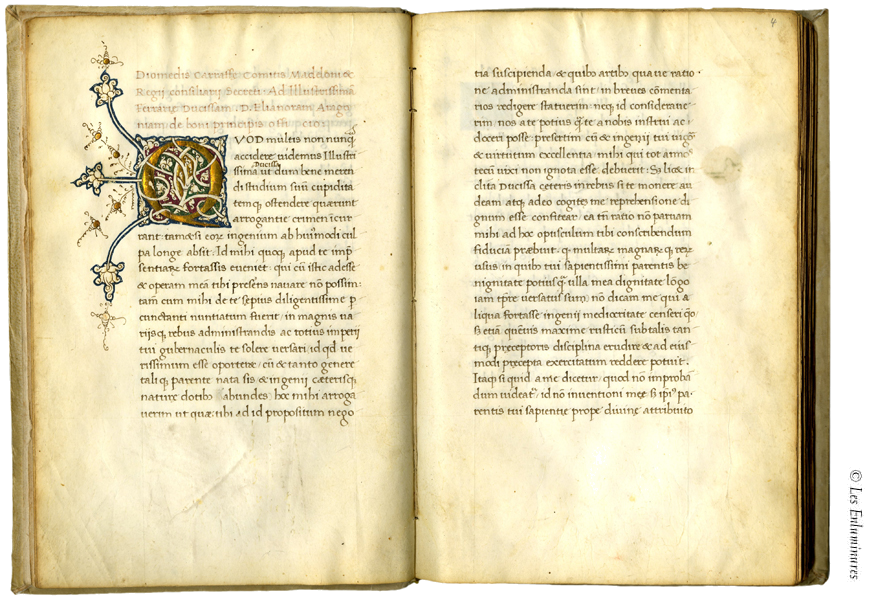 Diomedis Carraffe Comitis Maddoni &
Regij consiliarij Secreti Ad Illustrissimã
Ferrarie Ducissam D. Elianoram Aragõ
niam de boni principis offi cios
QVOD multis non nunq̃
accidere videmus Illustri
Ducissa
ssima ut dum bene meren
di studium suũ cupidita
temq; ostendere quærunt
arrogantie crimen ĩcur
rant: tametsi eorz ingenium ab huiꝰmodi cul
pa longe absit: Id mihi quoq; apud te imp̃
sentiarz fortassis eueniet: qui cũ istic adesse
& operam meã tibi presens nauare nõ possim:
tam cum mihi de te sepius diligentissime p
cunctanti nuntiatum fuerit in magnis ua
rijsq; rebus administrandis ac totius imperij
tui gubernaculis te solere versari id qd ue
rissimum esse oportere: cũ & tanto genere
taliq; parente nata sis & ingenij cæterisq;
nature dotibꝰ abundes: hoc mihi arroga
uerim ut quæ tibi ad id propositum nego
4
tia suscipienda & quibꝰ artibꝰ qua ue ratio
ne administranda sint in breues cõmenta
rios redigere statuerim neq; id consideraue
rim nos a te potius q̃ te a nobis instrui ac
doceri posse presertim cũ & ingenij tui uigor
& uirtutum excellentia mihi qui tot annos
tecũ vixi non ignota esse debuerit: Sz licz in
clita Ducissa ceteris in rebus si te monere au
deam atq; adeo cogites me reprehensione di
gnum esse confitear ea tñ ratio nõ paruam
mihi ad hoc opusculum tibi conscribendum
fiduciã præbuit: q multarz magnarq; rerz
usus in quibꝰ tui sapientissimi parentis be
nignitate potiusq̃ ulla mea dignitate lõgo
iam tp̃re versatus sum: nõ dicam me qui a
liqua fortasse ingenij mediocritate censeri q̃o
Sz etiã quẽuis maxime rusticũ sub talis tan
tiq; preceptoris disciplina erudire & ad eius
modi precepta exercitatum reddere potuit.
Itaq; si quid a me dicetur quod nõ improbã
dum uideatʳ id nõ inuentioni meę sz ipiꝰ pa
rentis tui sapientie prope diuine attribuito
© Les Enluminures